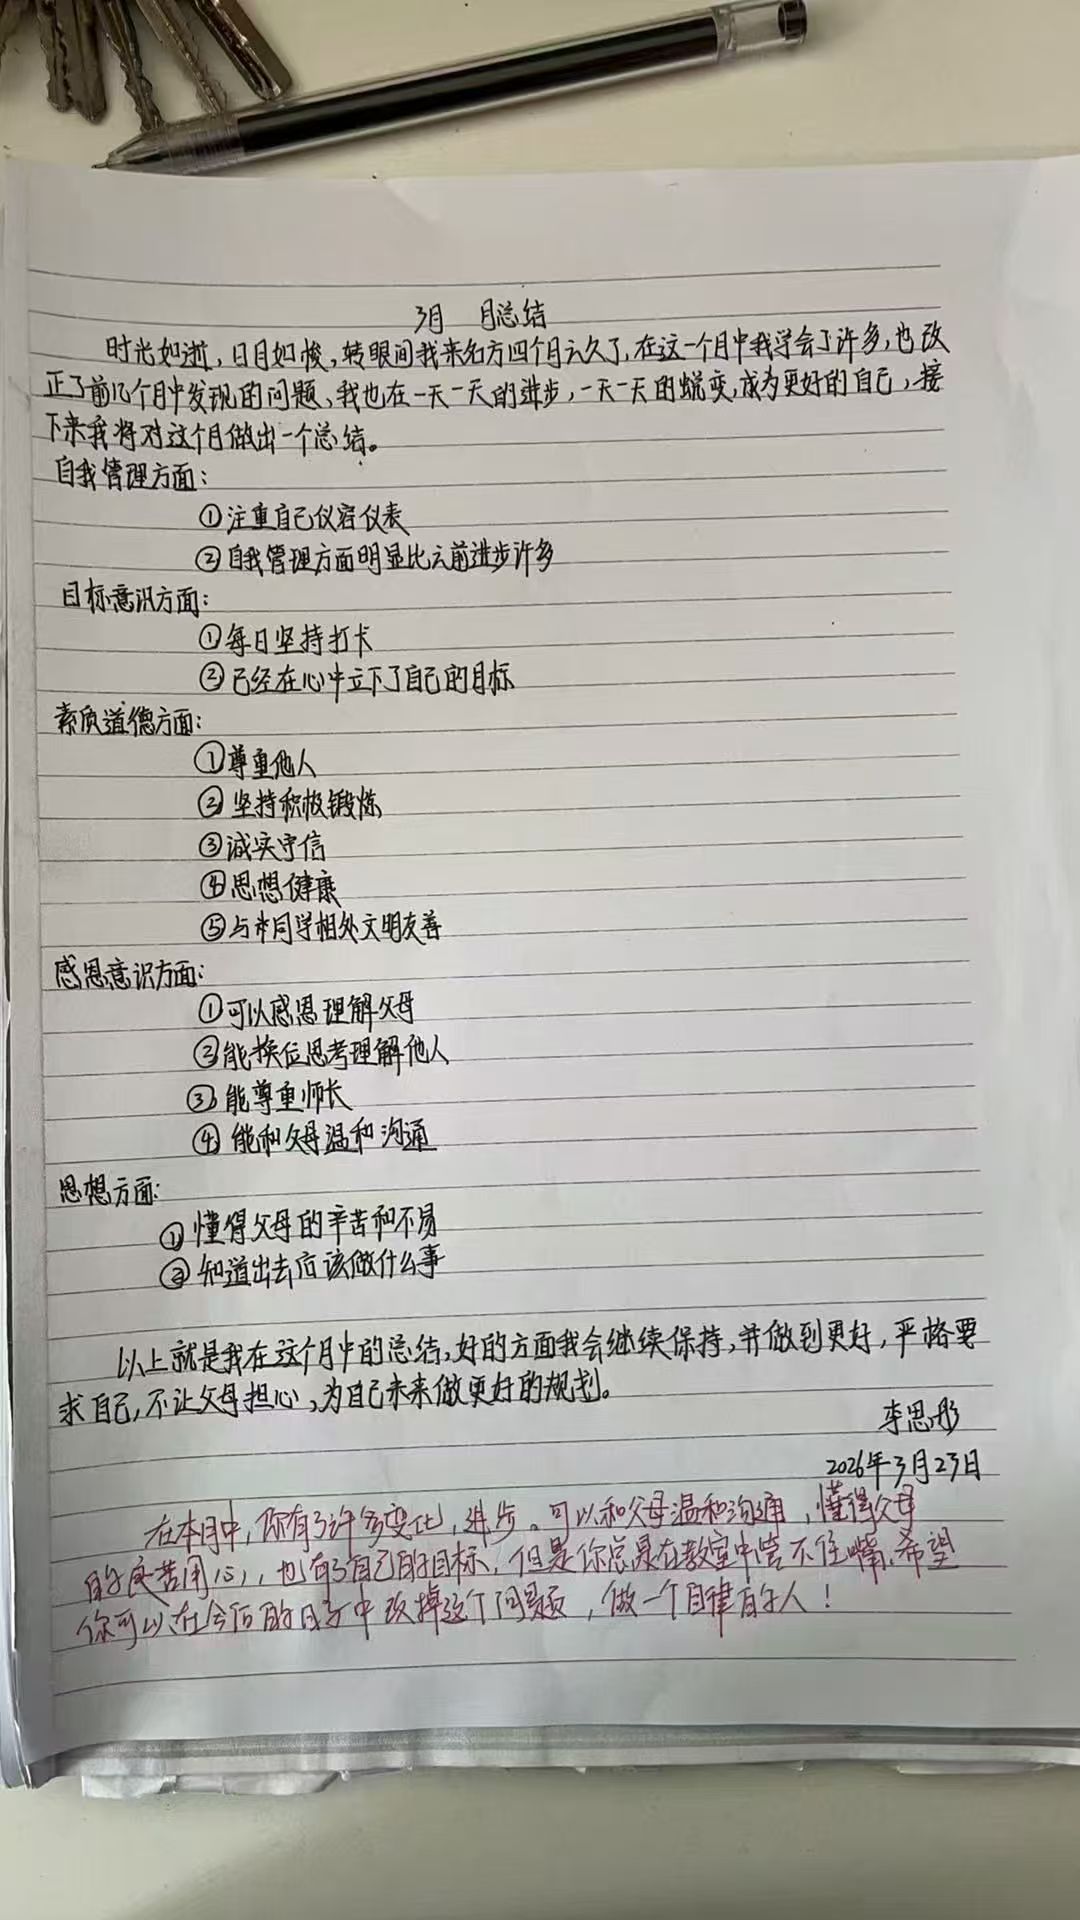 3月 月总结
时光如逝，日月如梭，转眼间我来名方四个月之久了，在这一个月中我学会了许多，也改
正了前几个月中发现的问题、我也在一天一天的进步，一天一天的蜕变，成为更好的自己，接
下来我将对这个月做出一个总结。
自我管理方面：
①注重自己仪容仪表
②自我管理方面明显比之前进步许多
目标意识方面：
①每日坚持打卡
②已经在心中立下了自己的目标
素质道德方面：
①尊重他人
②坚持积极锻炼
③诚实守信
④思想健康
⑤与本同学相处文明友善
感恩意识方面：
①可以感恩理解父母
②能换位思考理解他人
③能尊重师长
④能和父母温和沟通
思想方面：
①懂得父母的辛苦和不易
②知道出去后该做什么事
以上就是我在这个月中的总结，好的方面我会继续保持，并做到更好，严格要
求自己，不让父母担心，为自己未来做更好的规划。
李思彤
2026年3月23日
在本月中，你有了许多变化，进步。可以和父母温和沟通，懂得父母
的良苦用心，也有了自己的目标，但是你总是在教室中管不住嘴，希望
你可以在今后的日子中改掉这个问题，做一个自律的人！